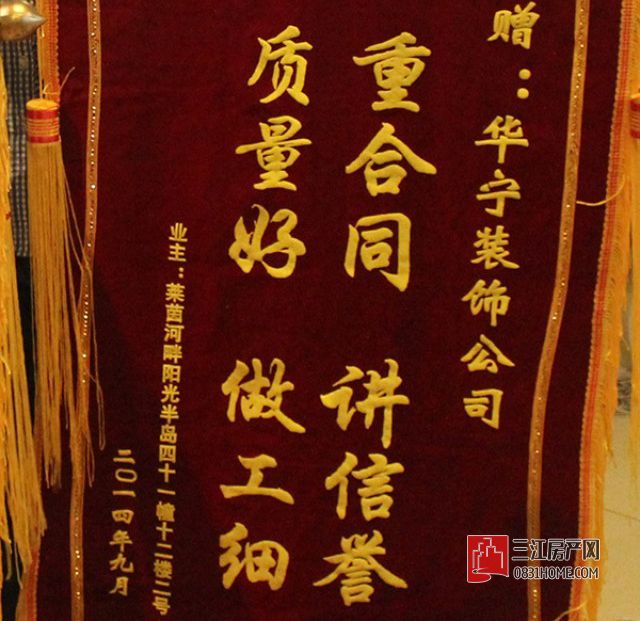 赠：华宁装饰公司
重合同 讲信誉
质量好 做工细
业主：莱茵河畔阳光半岛四十一幢十二楼二号
二〇一四年九月
三江房产网
0831HOME.COM